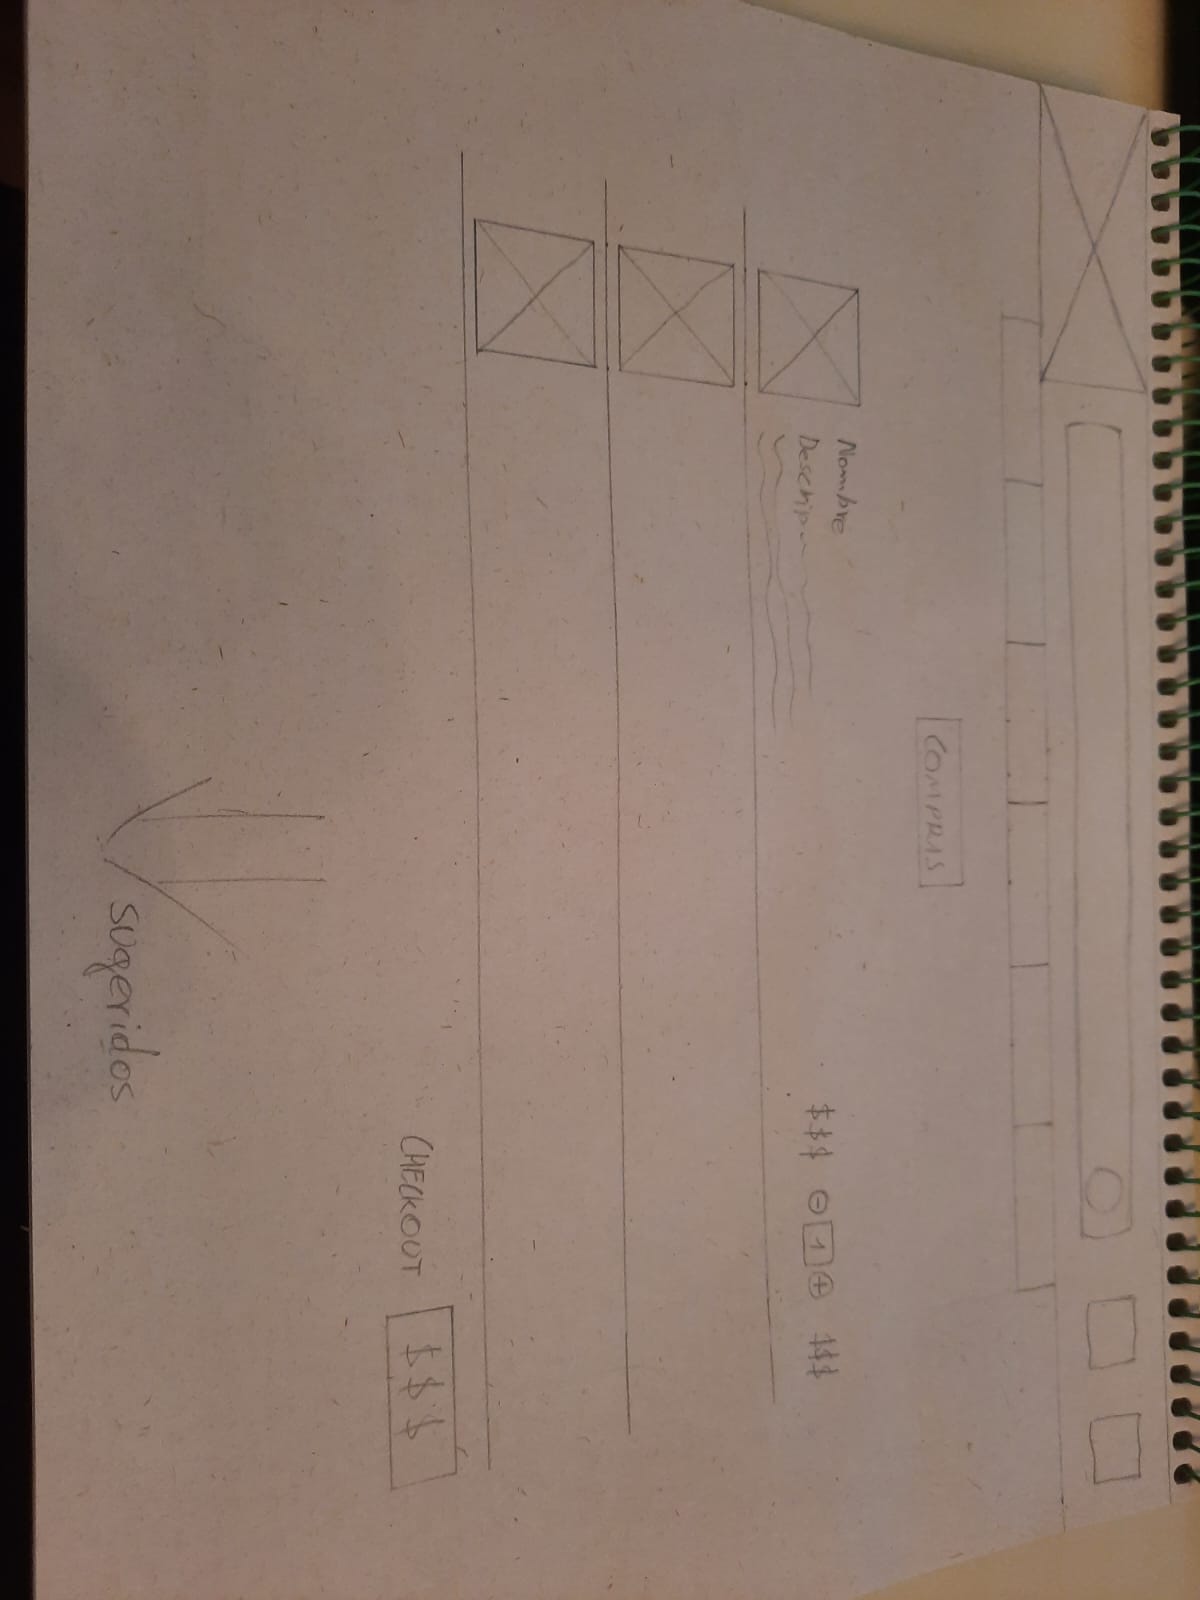 COMPRAS
Nombre
Descrip
$$$ ⊖ 1 ⊕ $$$
CHECKOUT $$$
Sugeridos